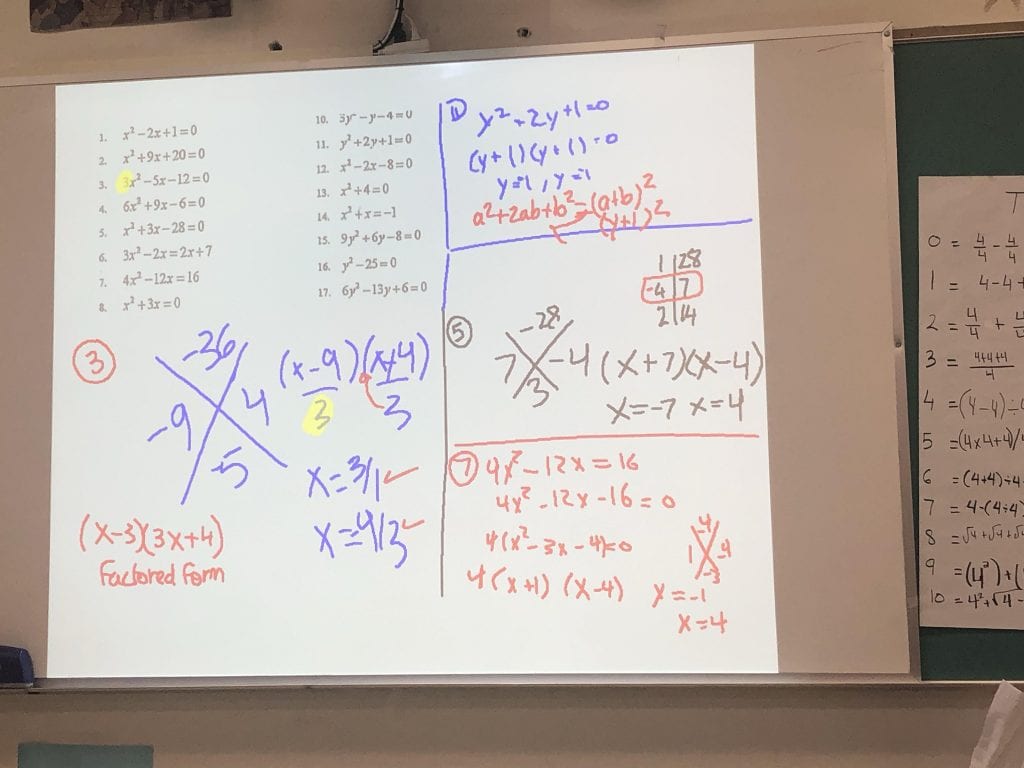 1. x²−2x+1=0
2. x²+9x+20=0
3. 3x²−5x−12=0
4. 6x²+9x−6=0
5. x²+3x−28=0
6. 3x²−2x=2x+7
7. 4x²−12x=16
8. x²+3x=0
10. 3y²−y−4=0
11. y²+2y+1=0
12. x²−2x−8=0
13. x²+4=0
14. x²+x=−1
15. 9y²+6y−8=0
16. y²−25=0
17. 6y²−13y+6=0
11 y²+2y+1=0
(y+1)(y+1)=0
y=-1, y=-1
a²+2ab+b²=(a+b)²
(y+1)²
3
-36
-9 4
-5
(x-9)(x+4)
3 3
x=3/1
x=-4/3
(x-3)(3x+4)
Factored form
5
1 28
-4 7
2 14
-28
7 -4
3
(x+7)(x-4)
x=-7 x=4
7 4x²-12x=16
4x²-12x-16=0
4(x²-3x-4)=0
4(x+1)(x-4)
-4
1 -4
-3
x=-1
x=4
T
0 = 4/4 - 4/4
1 = 4-4+
2 = 4/4 +
3 = 4+4+4/4
4 =(4-4)
5 =(4x4+4)/
6 =(4+4)÷4
7 = 4-(4÷4)
8 =√4+√4+√
9 =(4²)+(
10 =4²+√4-